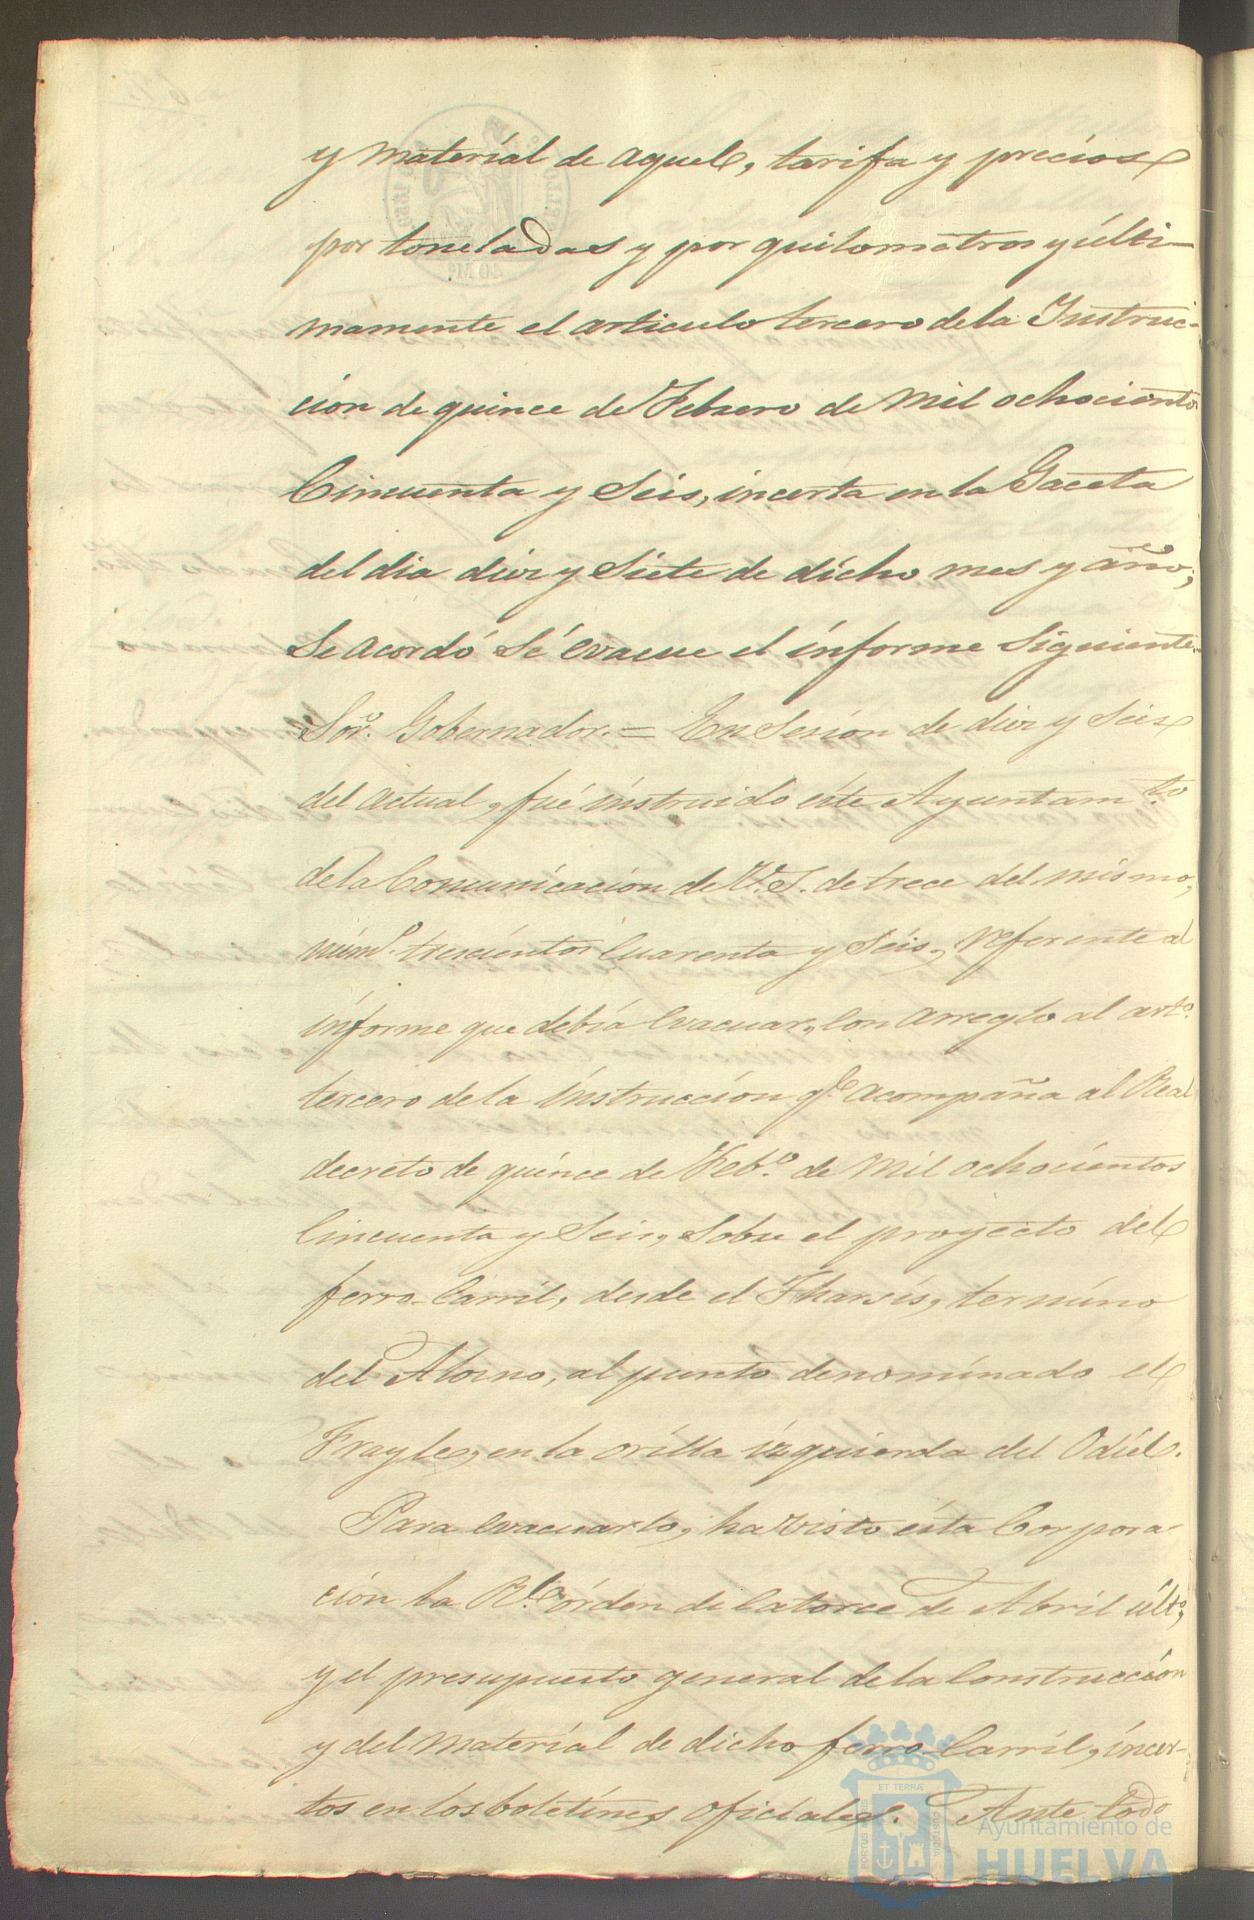 y material de aquel, tarifa y precios
por toneladas y por quilometros y ulti-
mamente el articulo tercero de la Instruc-
cion de quince de Febrero de Mil ochocientos
Cincuenta y Seis, incerta en la Gaceta
del dia diez y Siete de dicho mes y año,
Se acordó Sé evacue el informe Siguiente.
Sor. Gobernador. = En Sesion de diez y Seis
del actual, fué instruido este Ayuntam.to
de la Comunicacion de V.S. de trece del mismo,
núm.o trescientos Cuarenta y Seis, referente al
informe que debia evacuar, Con arreglo al art.o
tercero de la instruccion q.e acompaña al Real
decreto de quince de Feb.o de Mil ochocientos
Cincuenta y Seis, Sobre el proyecto del
ferro-Carril, desde el Tharsis, termino
del Alosno, al punto denominado el
Frayle, en la orilla izquierda del Odiel.
Para evacuarlo, ha visto ésta Corpora-
ción la R.l órden de Catorce de Abril últo,
y el presupuesto general de la Construccion
y del Material de dicho ferro-Carril, incer-
tos en los boletines oficiales. Ante todo
ET TERRÆ
Ayuntamiento de
HUELVA